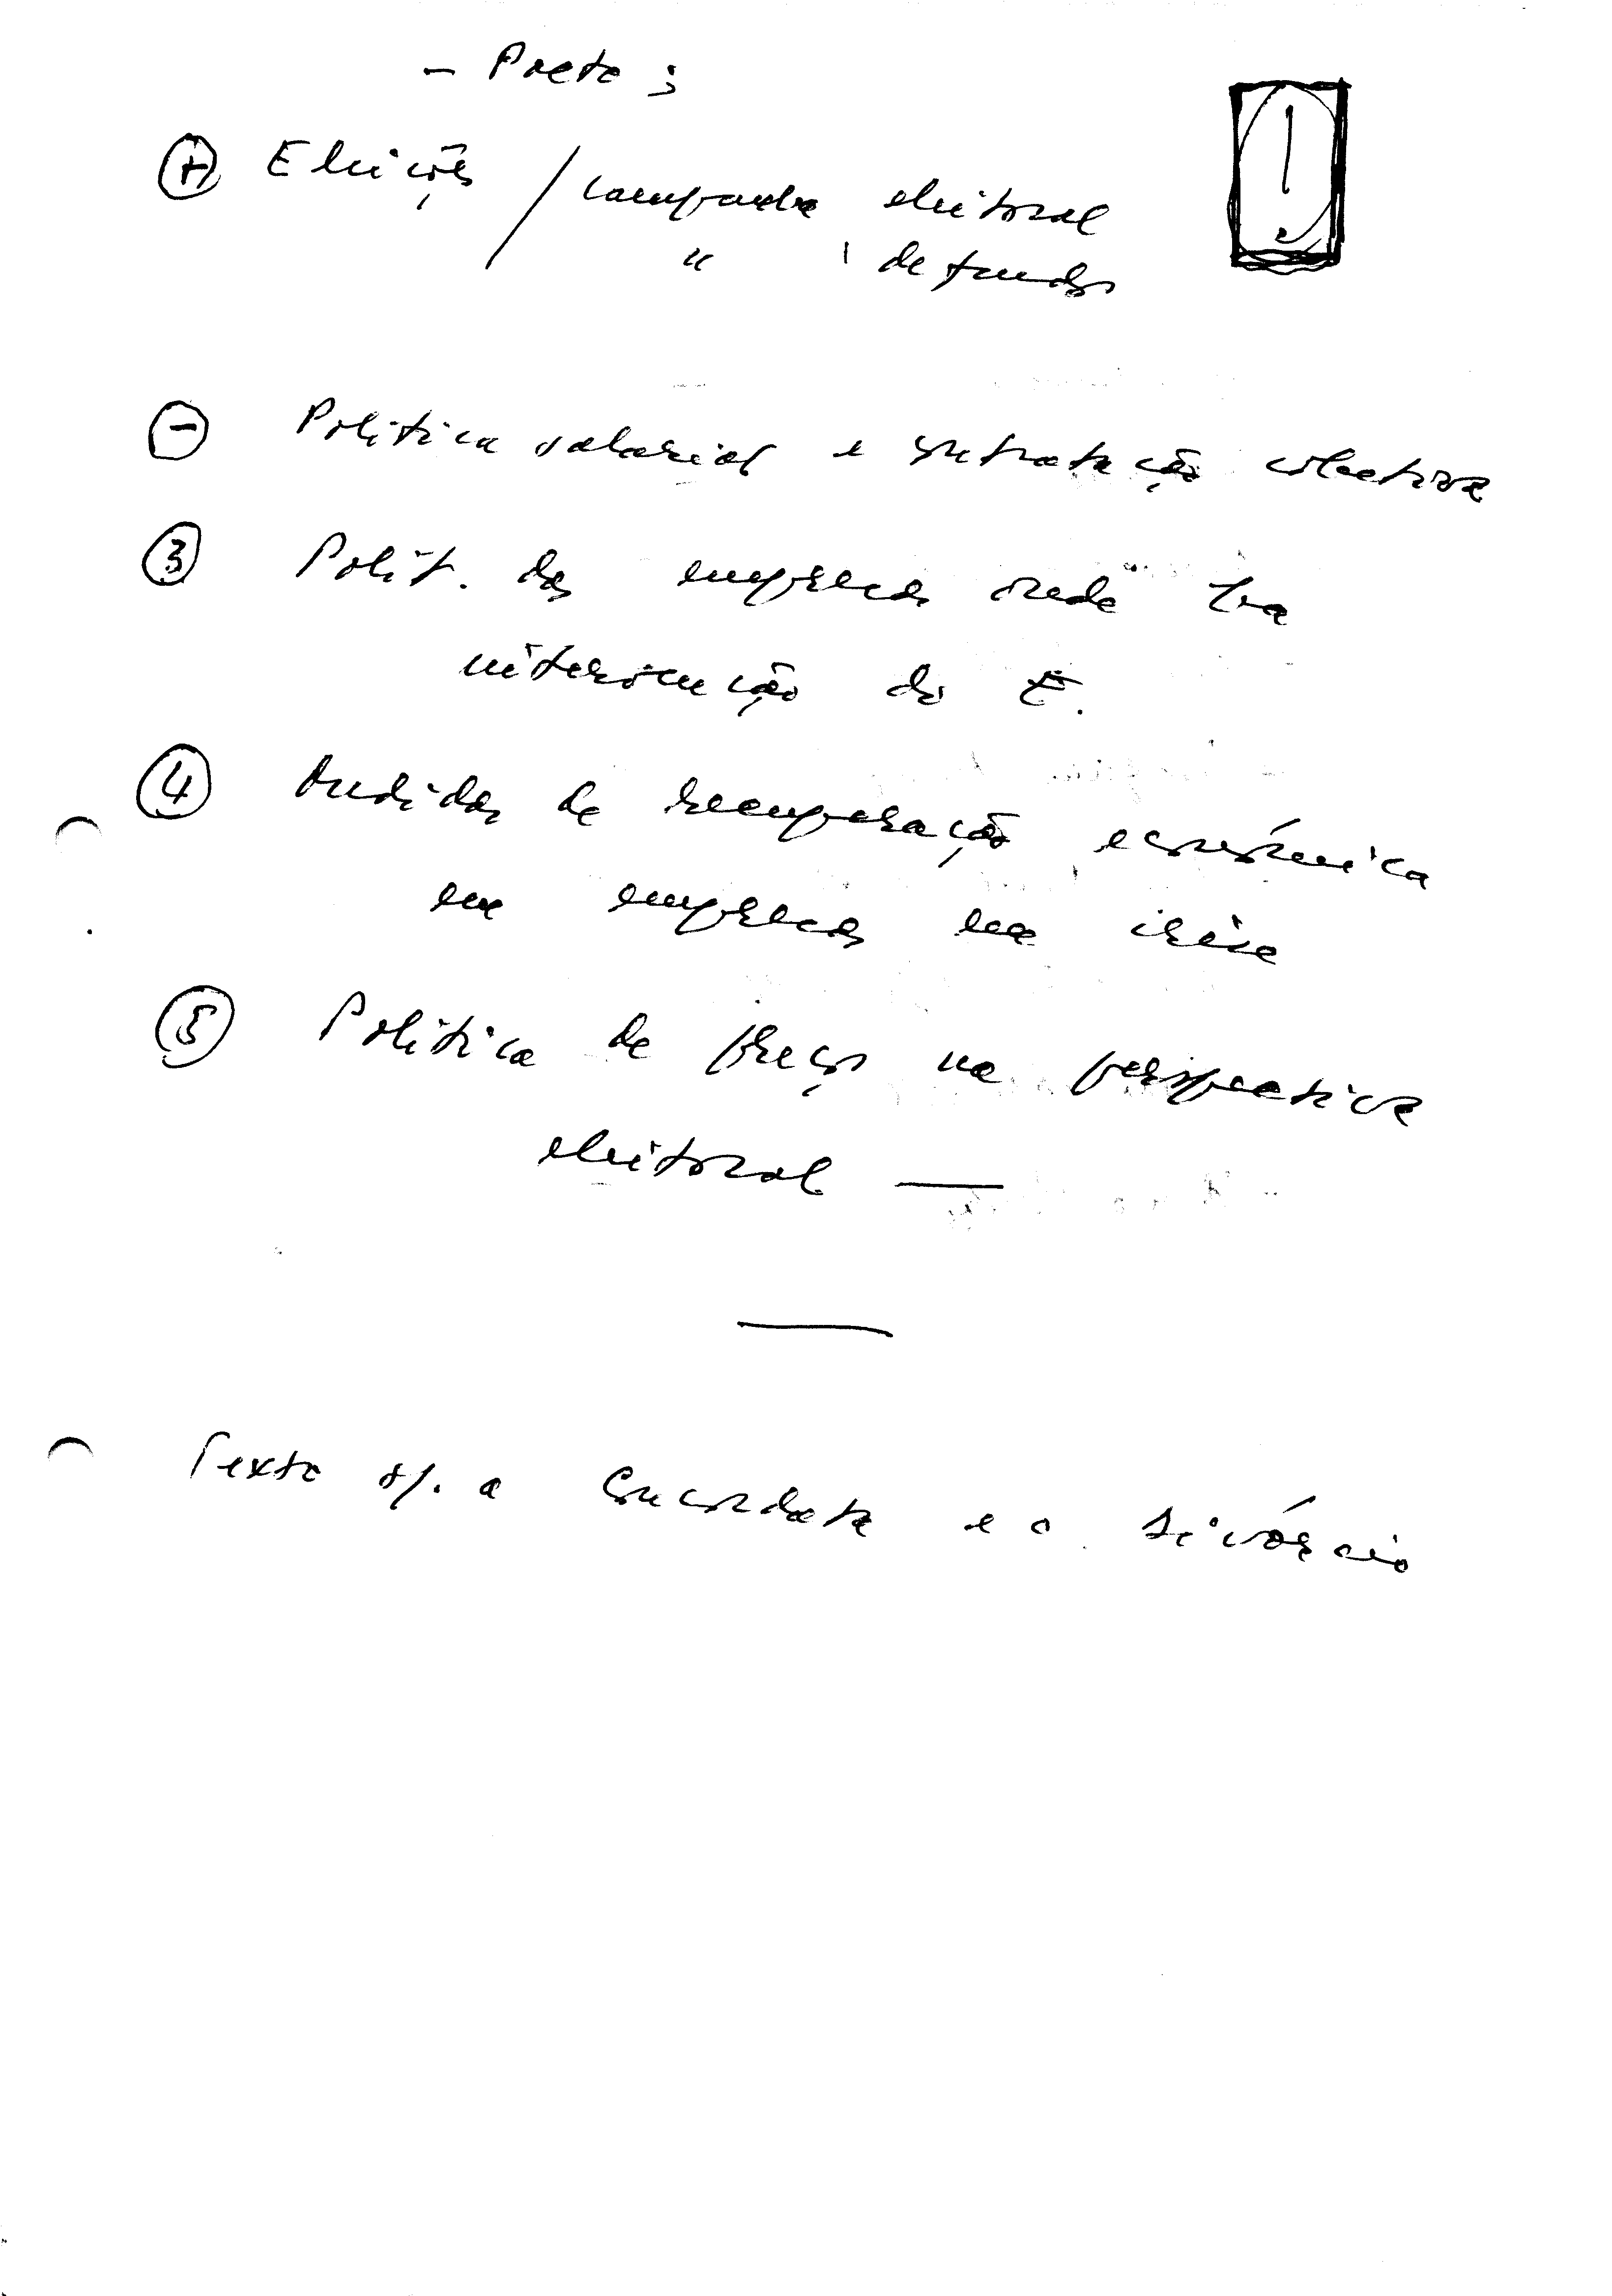 - Pacto ;
+ Eleições / campanha eleitoral !
" de fundos
- Política salarial e contratação colectiva
3 Polít. das empresas onde há
intervenção do E.
4 Medidas de recuperação económica
em empresas em crise
5 Política de preços na perspectiva
eleitoral —
Texto s/. a Concordata e o divórcio